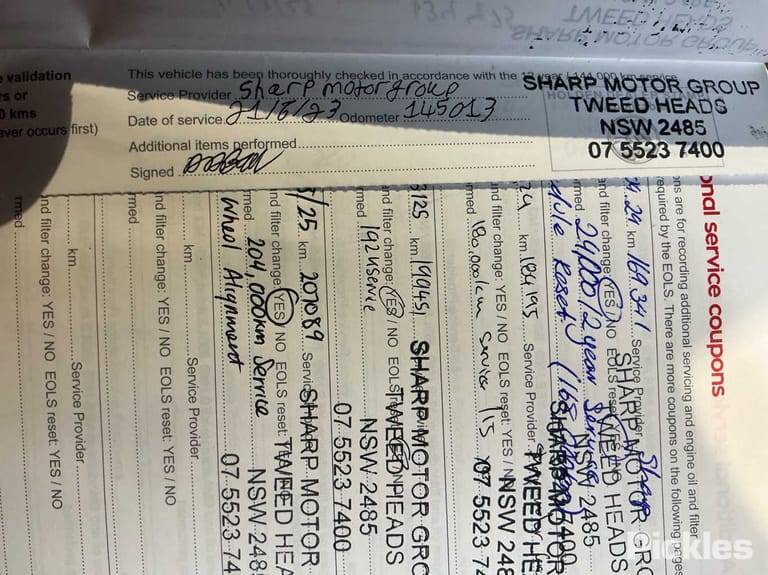 SHARP MOTOR GROUP
TWEED HEADS
e validation
rs or
0 kms
ever occurs first)
This vehicle has been thoroughly checked in accordance with the
Service Provider Sharp motor group
Date of service 21/6/23 Odometer 145013
Additional items performed
Signed
SHARP MOTOR GROUP
TWEED HEADS
NSW 2485
07 5523 7400
onal service coupons
ns are for recording additional servicing and engine oil and filter
required by the EOLS. There are more coupons on the following pages
24 km 169341 Service Provider Sharp
nd filter change: YES / NO EOLS
med 24000/2 year Service
dule Reset (168
SHARP MOTOR GRO
TWEED HEADS
NSW 2485
7400
24 km 184195 Service Provider
nd filter change: YES / NO
med 180,000km Service
SHARP MOTOR
TWEED HE
NSW 248
07 5523 7
3/25 km 199451
nd filter change: YES / NO EOLS
rmed 192K Service
SHARP MOTOR GRO
TWEED HEADS
NSW 2485
07 5523 7400
5/25 km 207089 Service
nd filter change: YES / NO EOLS reset:
rmed 204,000km Service
Wheel Alignment
SHARP MOTOR
TWEED HEA
NSW 2485
07 5523 74
km Service Provider
nd filter change: YES / NO EOLS reset: YES / NO
rmed
km Service Provider
nd filter change: YES / NO EOLS reset: YES / NO
rmed
Pickles